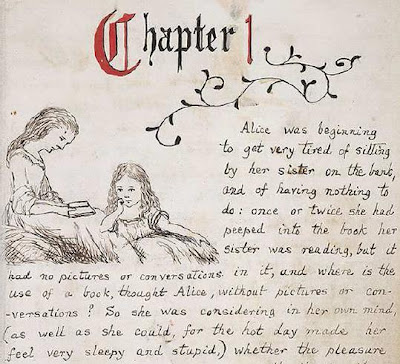 Chapter 1
Alice was beginning
to get very tired of sitting
by her sister on the bank,
and of having nothing to
do: once or twice she had
peeped into the book her
sister was reading, but it
had no pictures or conversations in it, and where is the
use of a book, thought Alice, without pictures or con-
-versations? So she was considering in her own mind,
(as well as she could, for the hot day made her
feel very sleepy and stupid,) whether the pleasure